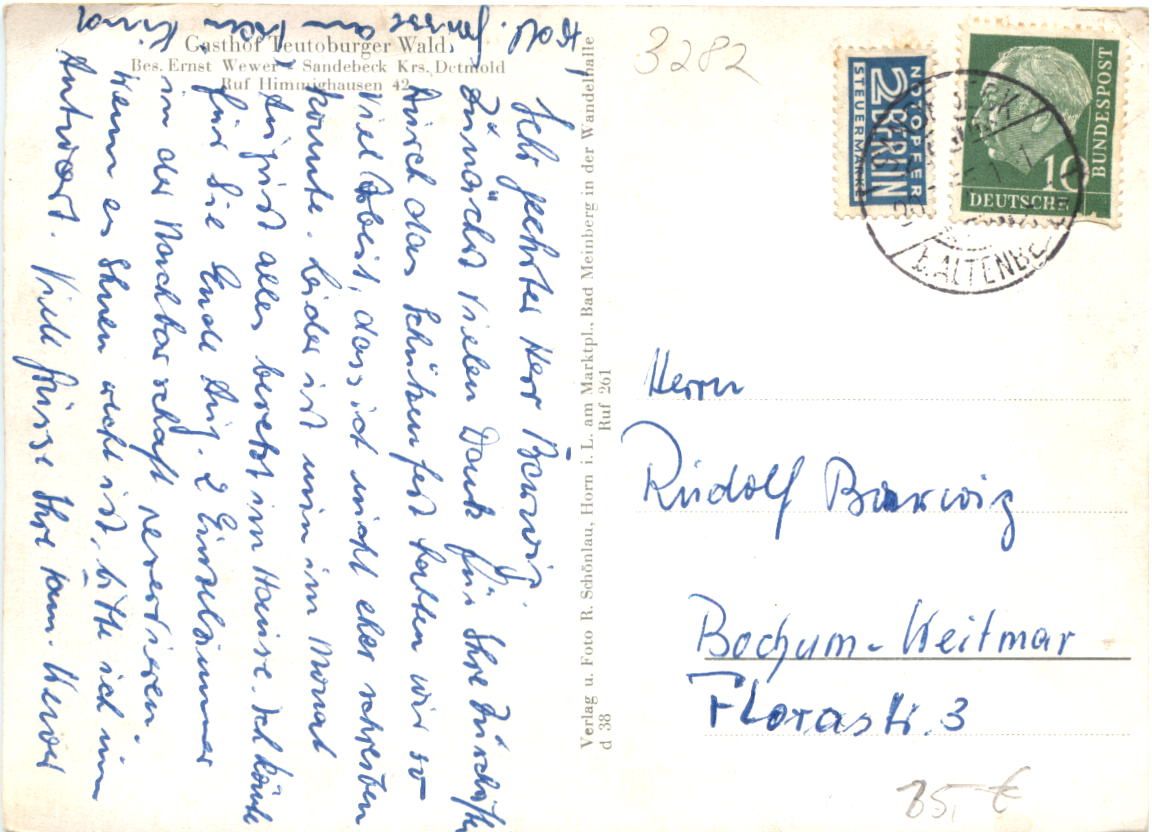 Gasthof Teutoburger Wald
Bes. Ernst Wewer - Sandebeck Krs. Detmold
Ruf Himmighausen 42
Sehr geehrter Herr Barwig.
Zunächst vielen Dank für Ihre Zuschrift
durch das Schützenfest hatten wir so
viel Arbeit, dass ich nicht eher schreiben
konnte. Leider ist nun im Monat
August alles besetzt im Hause. Ich könnte
für Sie Ende Aug. 2 Einzelzimmer
in der Nachbarschaft reservieren.
Wenn es Ihnen recht ist, bitte ich um
Antwort. Viele Grüsse Ihre Fam. Wewer
Grüsse an
Kind
Verlag u. Foto R. Schönlau, Horn i. L. am Marktpl., Bad Meinberg in der Wandelhalle
Ruf 261
d 38
3282
NOTOPFER
2 BERLIN
STEUERMARKE
10
DEUTSCHE
BUNDESPOST
ALTENBE
Herrn
Rudolf Barwig
Bochum-Weitmar
Florastr. 3
35,- €